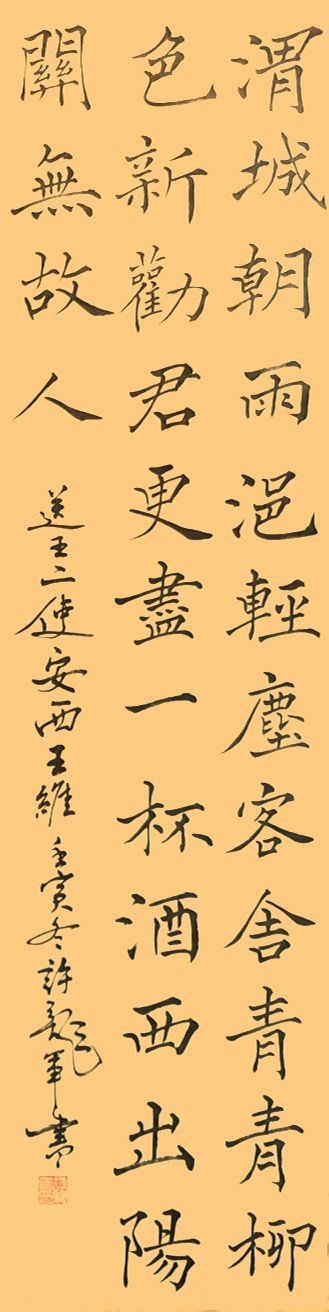 渭城朝雨浥輕塵客舍青青柳
色新勸君更盡一杯酒西出陽
關無故人
送王二使安西王維壬寅冬許龍軍書